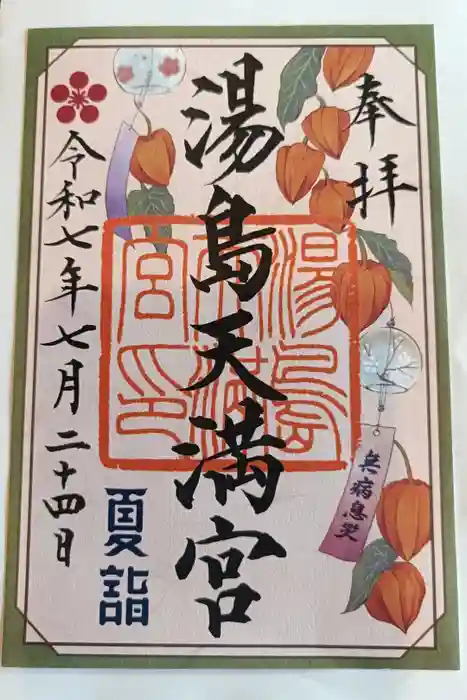 奉拝
湯島天満宮
湯島天満宮印
無病息災
令和七年七月二十四日
夏詣